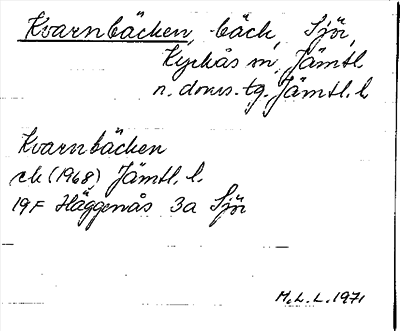 Kvarnbäcken, bäck, Sjör,
Kyrkås sn, Jämtl.
n. doms. tg. Jämtl. l.
Kvarnbäcken
ek (1968) Jämtl. l.
19F Häggenås 3a Sjör
M.L.L. 1971